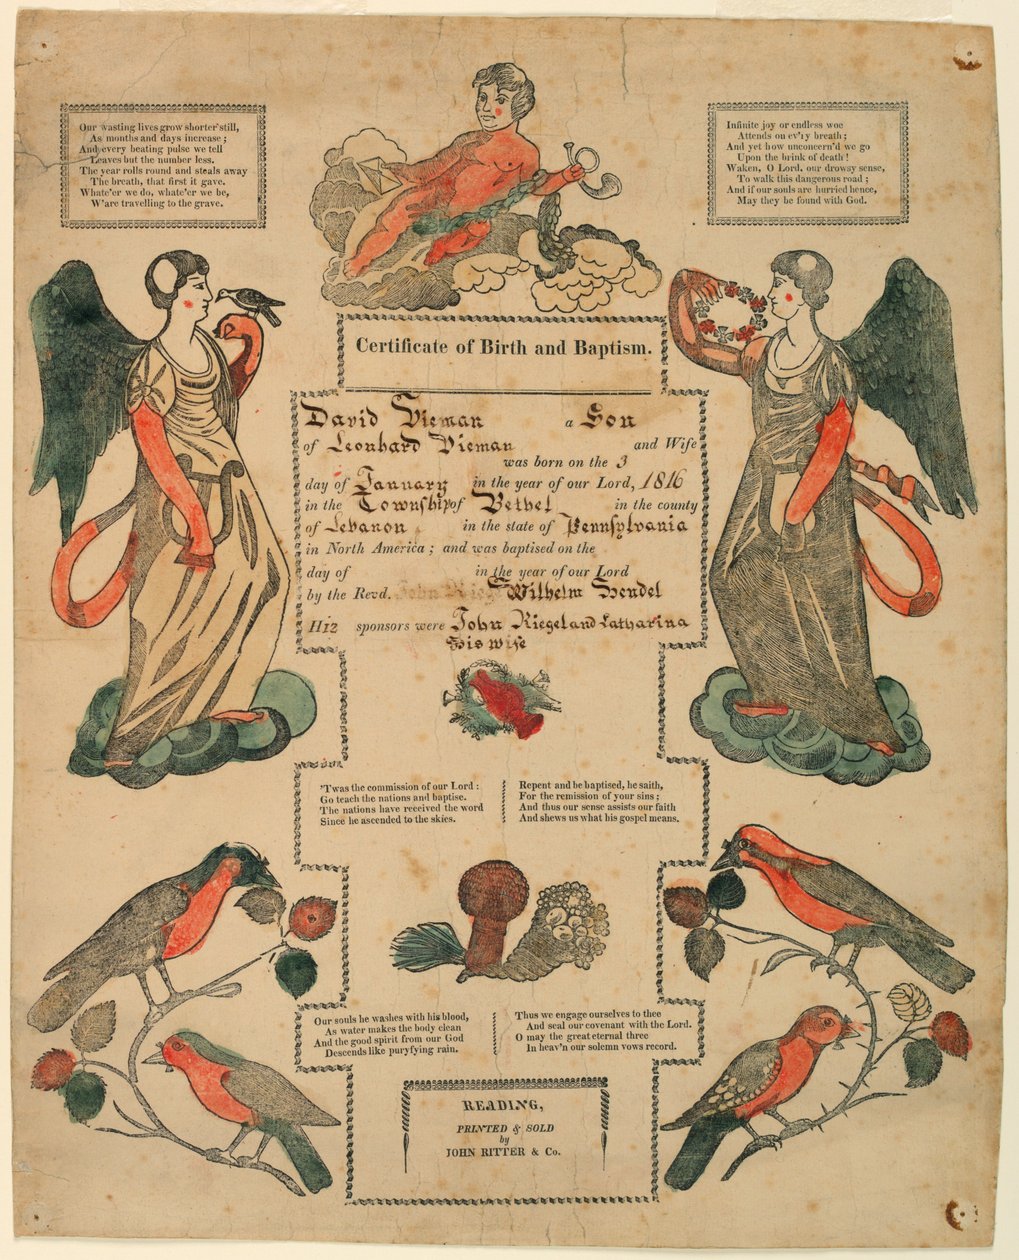 Our wasting lives grow shorter still,
As months and days increase;
And every beating pulse we tell
Leaves but the number less.
The year rolls round and steals away
The breath, that first it gave.
Whate'er we do, whate'er we be,
W'are travelling to the grave.
Infinite joy or endless woe
Attends on ev'ry breath;
And yet how unconcern'd we go
Upon the brink of death!
Waken, O Lord, our drowsy sense,
To walk this dangerous road;
And if our souls are hurried hence,
May they be found with God.
Certificate of Birth and Baptism.
David Vieman a Son
of Leonhard Vieman and Wife
was born on the 3
day of January in the year of our Lord, 1816
in the Township of Bethel in the county
of Lebanon in the state of Pennsylvania
in North America; and was baptised on the
day of in the year of our Lord
by the Revd. Wilhelm Hendel
His sponsors were John Riegel and Catharina
His wife
'Twas the commission of our Lord:
Go teach the nations and baptise.
The nations have received the word
Since he ascended to the skies.
Repent and be baptised, he saith,
For the remission of your sins;
And thus our sense assists our faith
And shews us what his gospel means.
Our souls he washes with his blood,
As water makes the body clean
And the good spirit from our God
Descends like puryfying rain.
Thus we engage ourselves to thee
And seal our covenant with the Lord.
O may the great eternal three
In heav'n our solemn vows record.
READING,
PRINTED & SOLD
by
JOHN RITTER & Co.